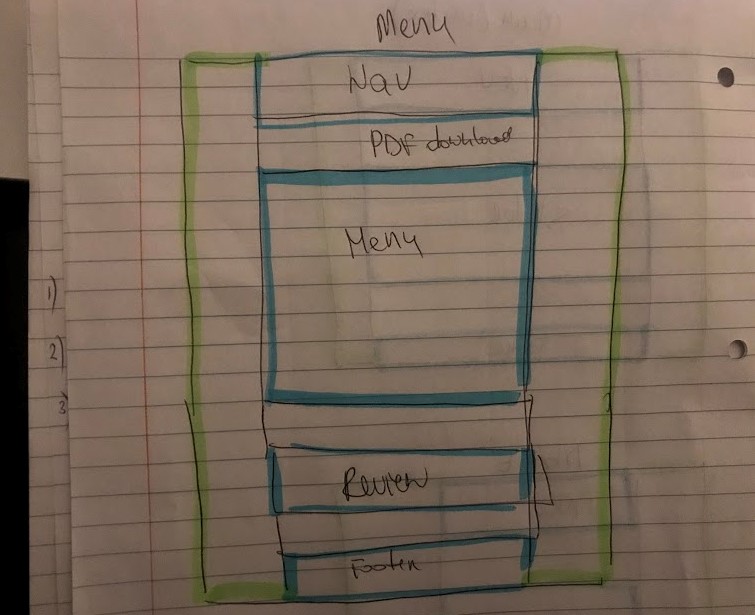 Menu
Nav
PDF download
Menu
1)
2)
3
Review
Footer